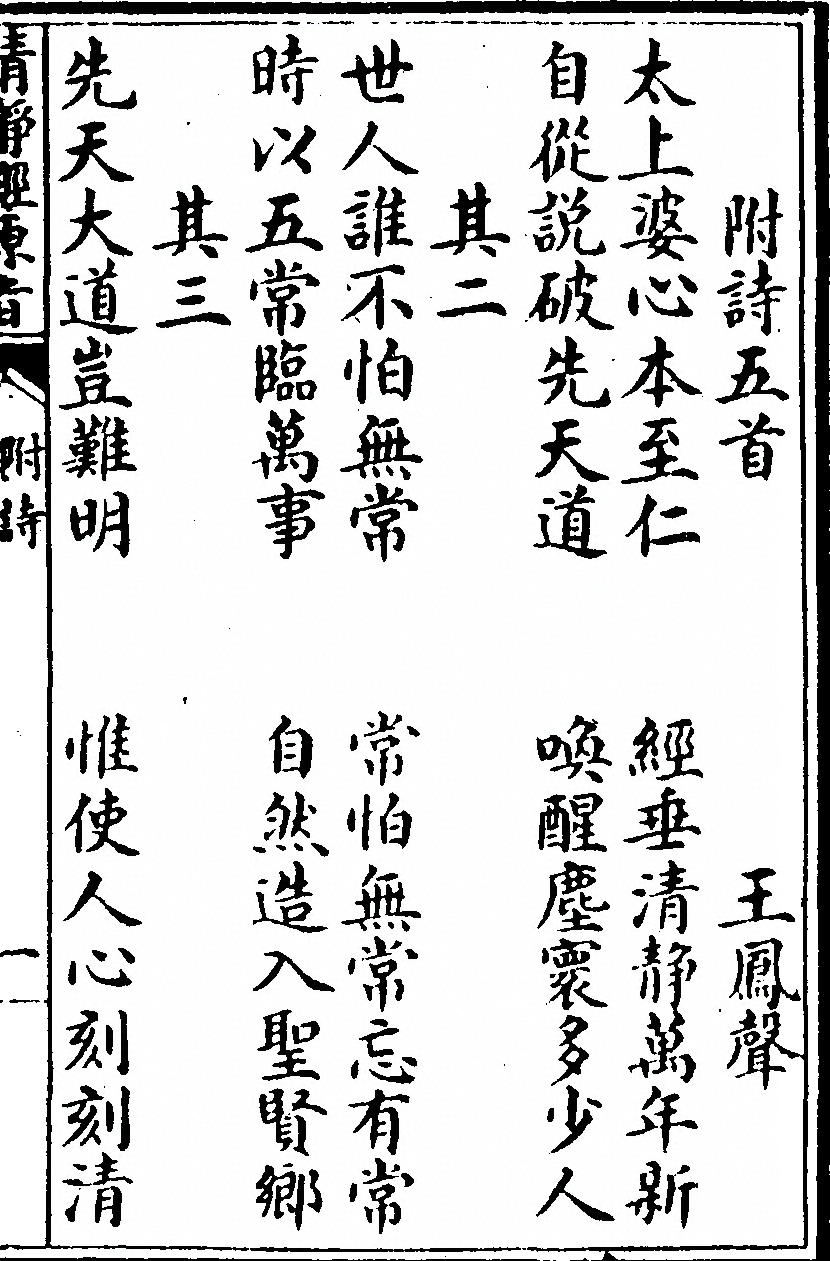 附詩五首 王鳳聲
太上婆心本至仁 經垂清靜萬年新
自從説破先天道 喚醒塵寰多少人
其二
世人誰不怕無常 常怕無常忘有常
時以五常臨萬事 自然造入聖賢鄉
其三
先天大道豈難明 惟使人心刻刻清
清靜經原旨 附詩 一